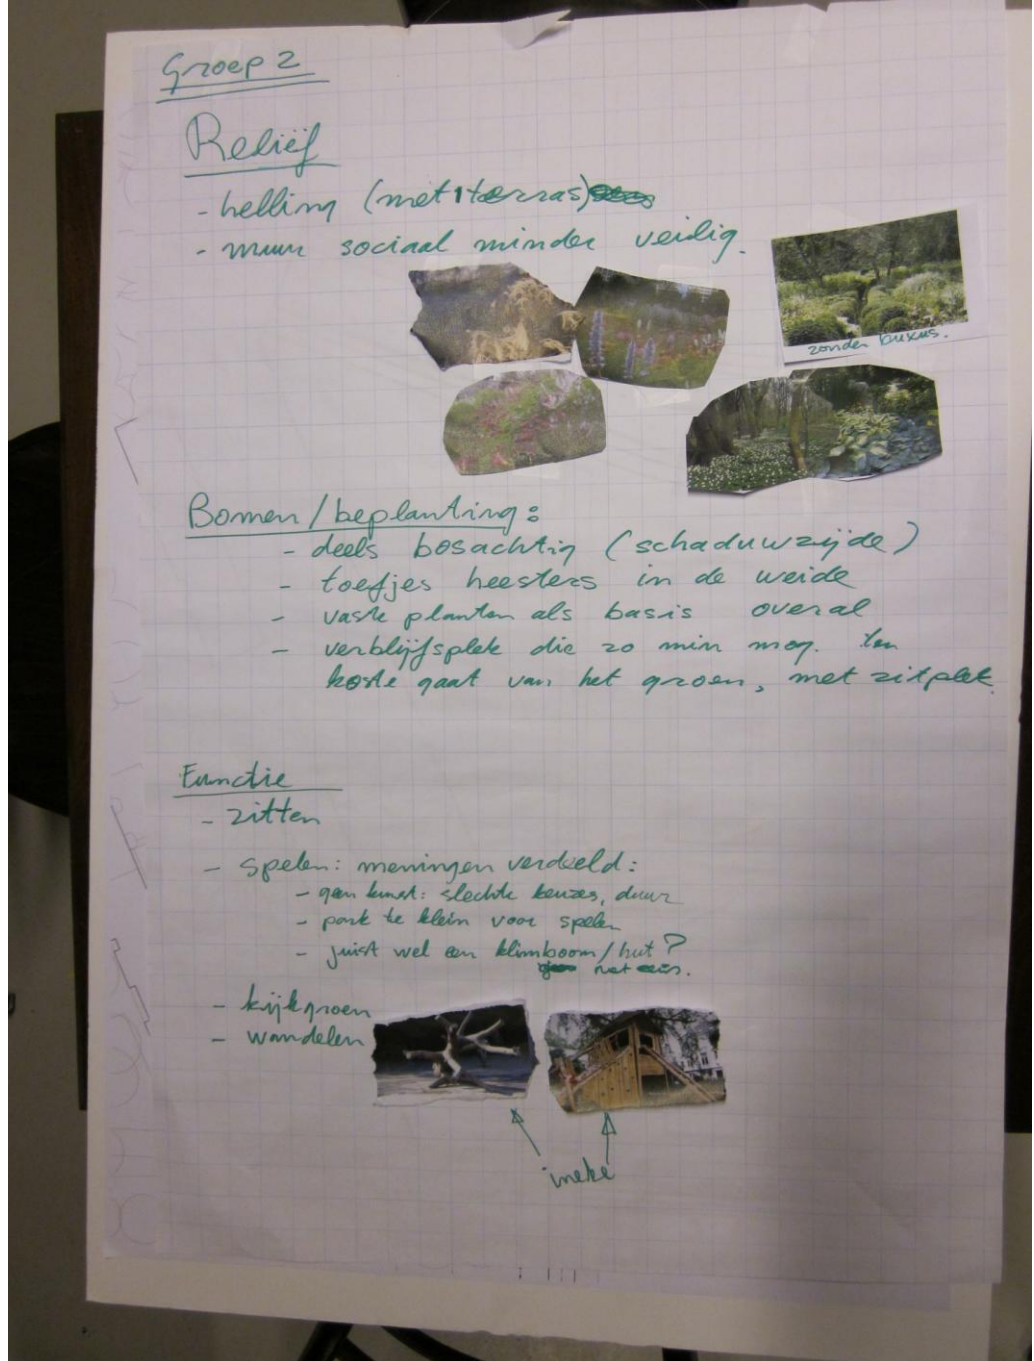 Groep 2
Reliëf
- helling (met 1 terras)
- muur sociaal minder veilig.
zonder buxus.
Bomen/beplanting:
- deels bosachtig (schaduwzijde)
- toefjes heesters in de weide
- vaste planten als basis overal
- verblijfsplek die zo min mog. ten
koste gaat van het groen, met zitplek.
Functie
- zitten
- spelen: meningen verdeeld:
- geen kunst: slechte keuzes, duur
- park te klein voor spelen
- juist wel een klimboom/hut?
- kijkgroen
- wandelen
ineke